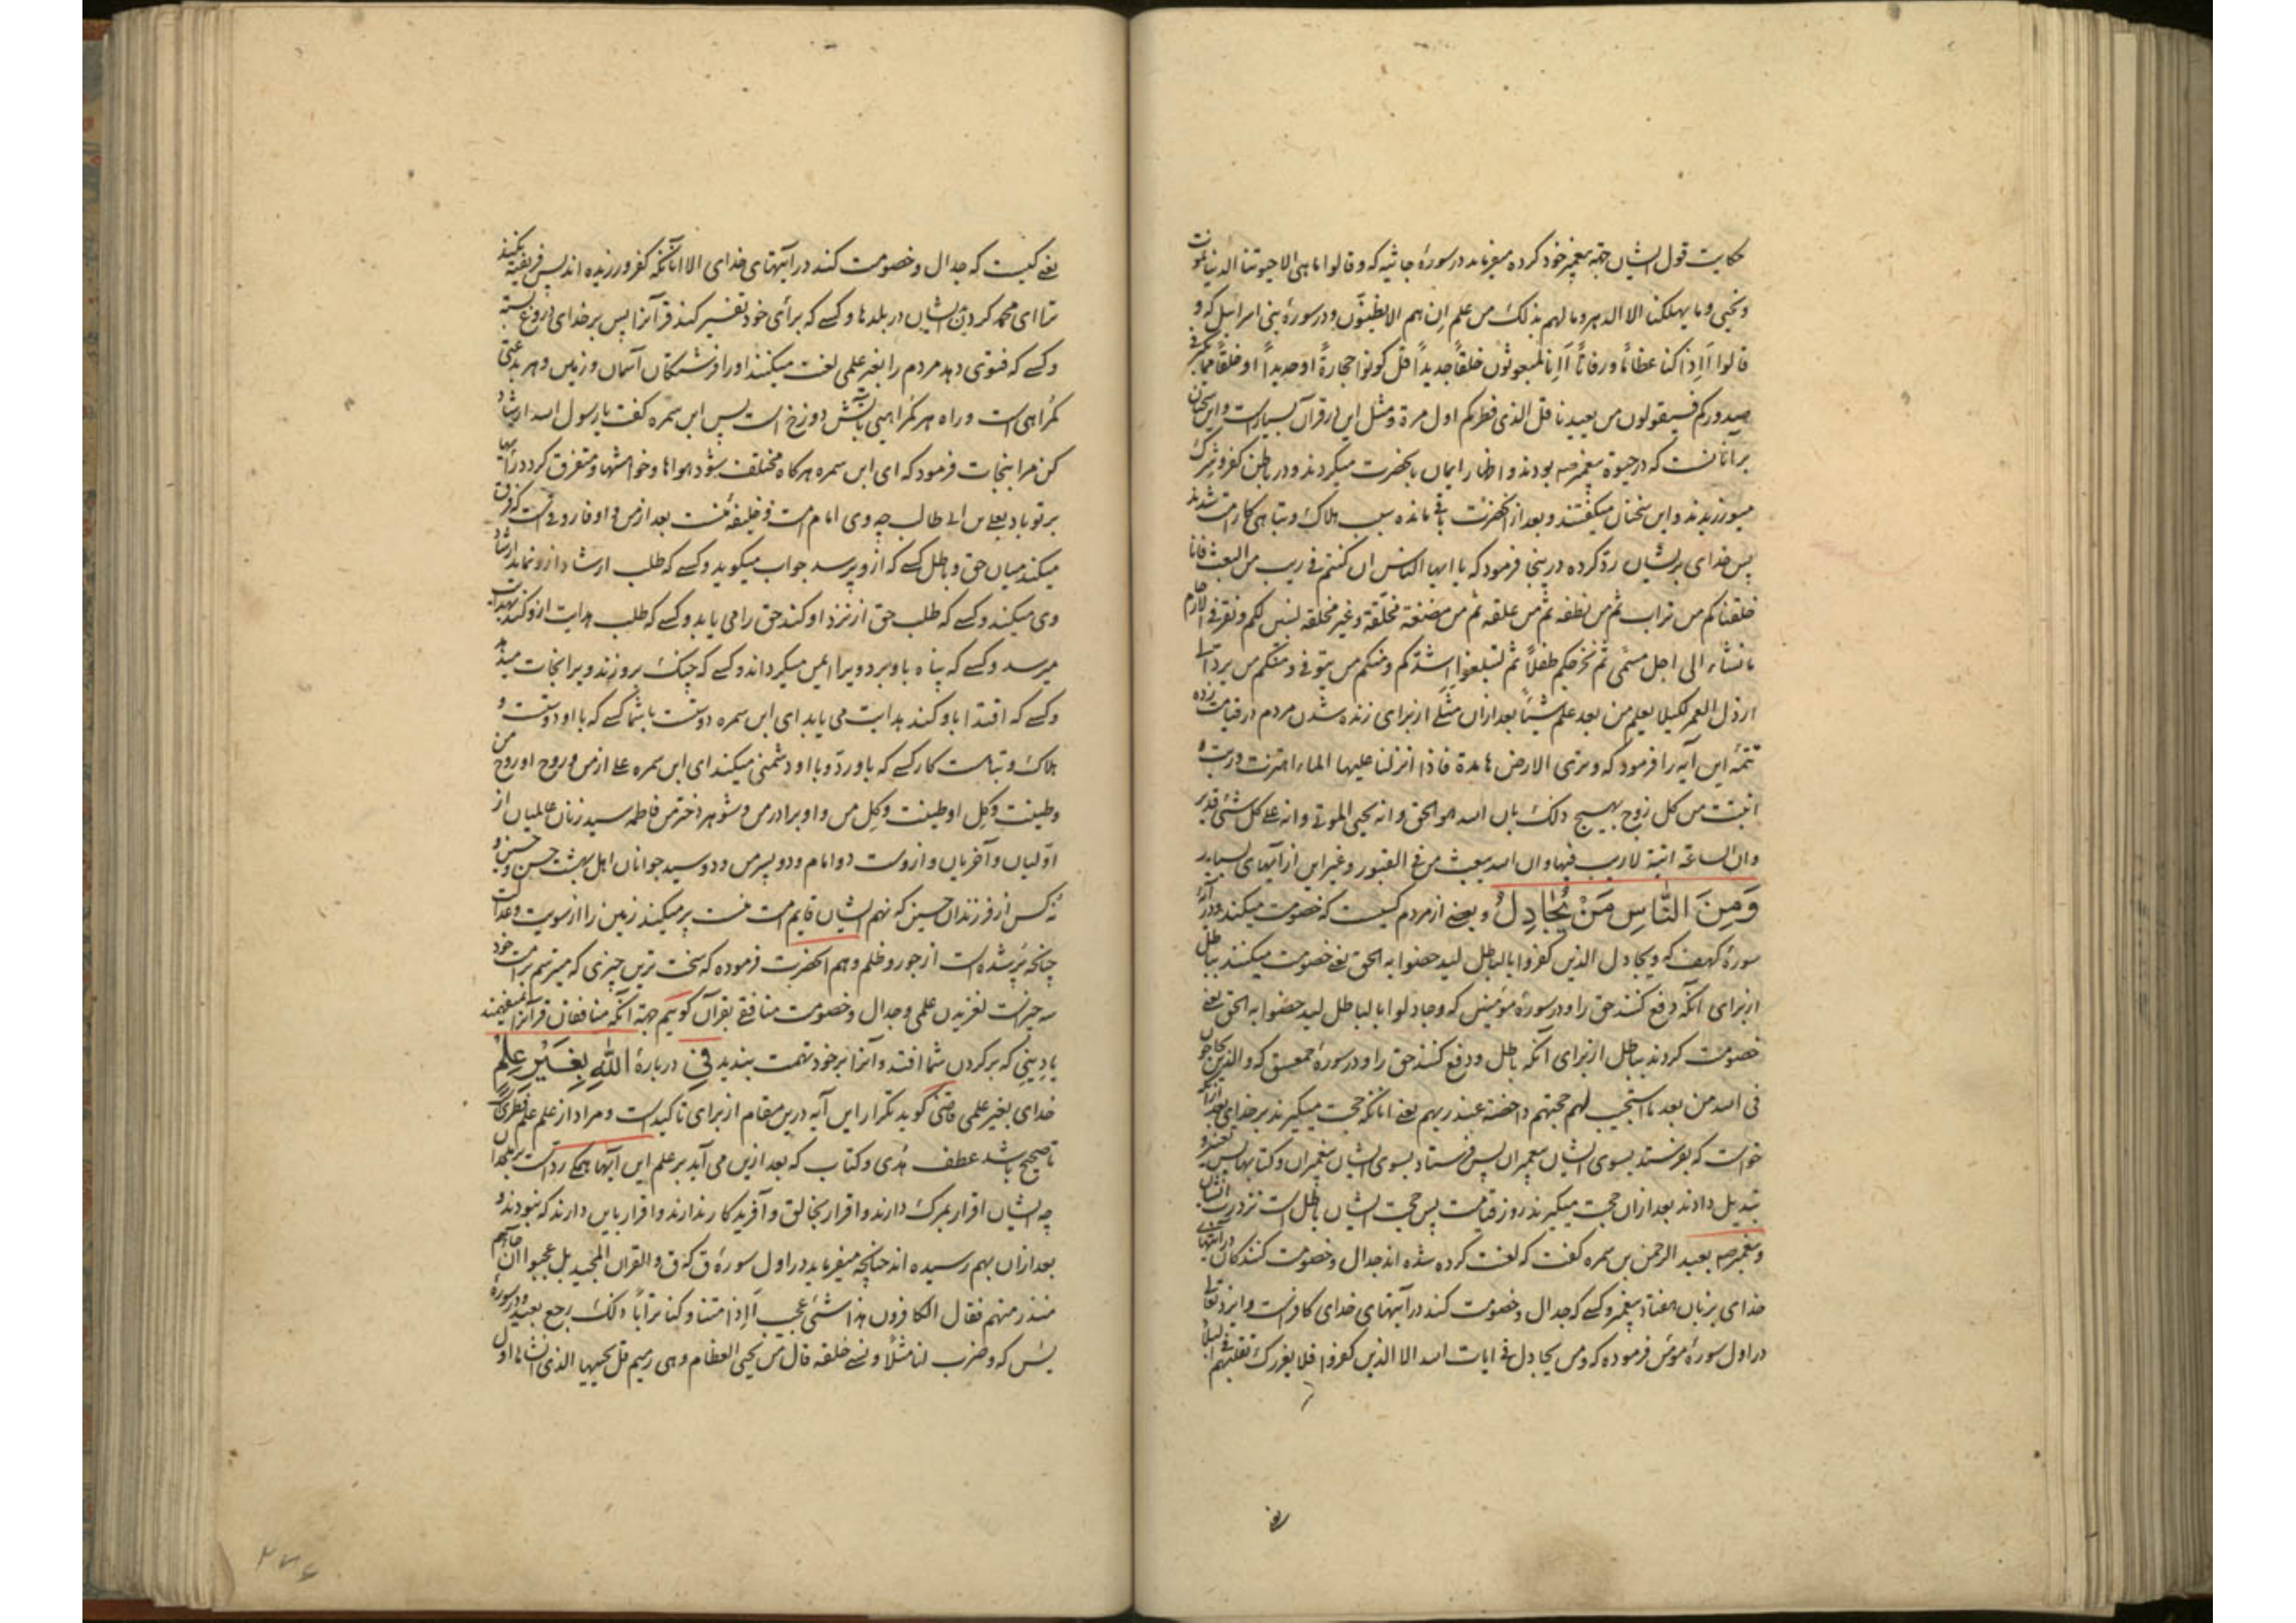 حکایت قول ایشان جهة پیغمبر خود کرده میفرماید در سورۀ جاثیه که وقالوا ما هی الا حیوتنا الدنیا نموت
ونحیی وما یهلکنا الا الدهر وما لهم بذلک من علم ان هم الا یظنون و در سورۀ بنی اسرائیل که و
قالوا أإذا کنا عظاماً ورفاتاً أإنا لمبعوثون خلقاً جدیداً قل کونوا حجارةً او حدیداً او خلقاً مما یکبر فی
صدورکم فسیقولون من یعیدنا قل الذی فطرکم اول مرة و مثل این در قرآن بسیار است و این سخنان
بر آنانست که در حیوة پیغمبر صه بودند و اظهار ایمان بانحضرت میکردند و در باطن کفر و شرک
میورزیدند و این سخنان میگفتند و بعد از انحضرت باقی مانده سبب هلاک و تباهی کار امت شدند
پس خدای بریشان ردّ کرده درینجا فرمود که یا ایها الناس ان کنتم فی ریب من البعث فانا
خلقناکم من تراب ثم من نطفه ثم من علقه ثم من مضغة مخلّقة وغیر مخلقه لنبین لکم ونقر فی الارحام
ما نشاء الی اجل مسمّی ثم نخرجکم طفلاً ثم لتبلغوا اشدّکم ومنکم من یتوفی ومنکم من یرد الی
ارذل العمر لکیلا یعلم من بعد علم شیئاً بعد ازان مثلی از برای زنده شدن مردم در قیامت زده
تتمۀ این آیه را فرمود که وتری الارض هامدة فاذا انزلنا علیها الماء اهتزت وربت و
انبتت من کل زوج بهیج ذلک بان الله هو الحق وانه یحیی الموتی وانه علی کل شئ قدیر
وان الساعة اتیة لا ریب فیها وان الله یبعث من فی القبور وغیر این از آیهای بسیار
وَمِنَ النّاسِ مَنْ یُجَادِلُ و بعضی از مردم کیست که خصومت میکند و در
سورۀ کهف که ویجادل الذین کفروا بالباطل لیدحضوا به الحق یعنی خصومت میکنند بباطل
از برای آنکه دفع کنند حق را و در سورۀ مؤمنین که وجادلوا بالباطل لیدحضوا به الحق یعنی
خصومت کردند بباطل از برای آنکه باطل و دفع کنند حق را و در سورۀ حمعسق که والذین یحاجون
فی الله من بعد ما استجیب لهم حجتهم داحضة عند ربهم یعنی انانکه حجت میگیرند بر خدای بعد ازآنکه
خواست که بفرستد بسوی ایشان پیغمبران پس فرستاد بسوی ایشان پیغمبران و کتابها پس تغییر و
تبدیل دادند بعد ازان حجت میگیرند روز قیامت پس حجت ایشان باطل است نزد رب ایشان
و پیغمبر صه بعبد الرحمن بن سمره گفت که لعنت کرده شده اند جدال و خصومت کنندکان در آیتهای
خدای بزبان هفتاد پیغمبر و کسی که جدال و خصومت کند در آیتهای خدای کافر است و ایزد تعالی
در اول سورۀ مؤمن فرموده که ومن یجادل فی ایات الله الا الذین کفروا فلا یغررک تقلبهم فی البلاد
یعنی کیست که جدال و خصومت کند در آیتهای خدای الا انانکه کفر ورزیده اند پس فریفته نکند
ترا ای محمد کردیدن ایشان در بلدها و کسی که برای خود تفسیر کند قرآنرا پس بر خدای دروغ بسته
و کسی که فتوی دهد مردم را بغیر علمی لعنت میکنند او را فرشتکان آسمان و زمین و هر بدعتی
کمراهی است و راه هر کمراهیی بآتش دوزخ است پس ابن سمره گفت یا رسول الله ارشاد
کن مرا بنجات فرمود که ای ابن سمره هرگاه مختلف شود هواها و خواهشها و متفرق کردد رایها
بر تو باد بعلی بن ابی طالب چه وی امام امت و خلیفۀ منست بعد از من و او فاروقی است که فرق
میکند میان حق و باطل کسی که ازو پرسد جواب میگوید و کسی که طلب ارشاد ازو نماید ارشاد
وی میکند و کسی که طلب حق از نزد او کند حق را می یابد و کسی که طلب هدایت ازو کند بهدایت
میرسد و کسی که پناه باو برد ویرا ایمن میکرداند و کسی که چنک برو زند ویرا نجات میدهد
و کسی که اقتدا باو کند هدایت می یابد ای ابن سمره دوست باش با کسی که با او دوست و
هلاک و تباه است کار کسی که باو ردّ و با او دشمنی میکند ای ابن سمره علی از من و روح او روح من
و طینت و کل او طینت و کل من و او برادر من و شوهر دختر من فاطمه سید زنان عالمیان از
اولیان و آخریان و ازوست دو امام و دو پسر من و دو سید جوانان اهل بهشت حسن و حسین و
نه کس از فرزندان حسین که نهم ایشان قایم امت منست پر میکند زمین را از سویت و عدالت
چنانچه پر شده است از جور و ظلم و هم انحضرت فرموده که سخت ترین چیزی که میترسم بر امت خود
سه چیزست لغزیدن علمی و جدال و خصومت منافقی بقرآن کوییم جهة آنکه منافقان قرآنرا نمیفهمند
یا دینی که بر کردن شما افتد و آنرا بر خود تهمت بندید فِی دربارۀ اللّٰهِ بِغَیْرِ عِلْمٍ
خدای بغیر علمی قاضی کوید تکرار این آیه درین مقام از برای تاکید است و مراد از علم علم فطریست
تا صحیح باشد عطف هدی و کتاب که بعد ازین می آید بر علم این آیها همکی رد است بر ملحدان
چه ایشان اقرار بمرک دارند و اقرار بخالق و آفریدکار ندارند و اقرار باین دارند که نبودند و
بعد ازان بهم رسیده اند چنانچه میفرماید در اول سورۀ ق که ق والقران المجید بل عجبوا ان جاءهم
منذر منهم فقال الکافرون هذا شئ عجیب أإذا متنا وکنا تراباً ذلک رجع بعید و در سورۀ
یس که وضرب لنا مثلاً ونسی خلقه قال من یحیی العظام وهی رمیم قل یحییها الذی انشاها اول
۲۷۶